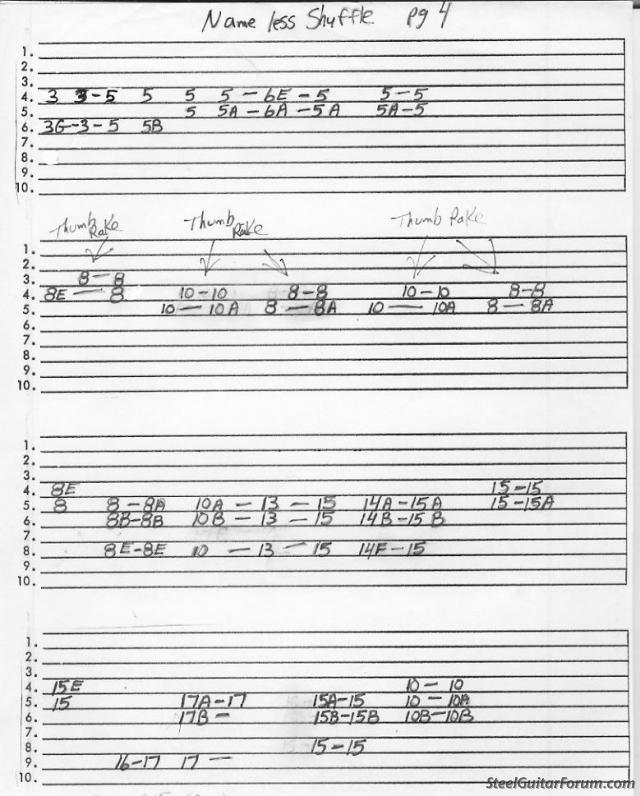 Nameless Shuffle pg 4
1.
2.
3.
4. 3 3-5 5 5 5-6E-5 5-5
5. 5 5A-6A-5A 5A-5
6. 3G-3-5 5B
7.
8.
9.
10.
Thumb Rake Thumb Rake Thumb Rake
1.
2.
3. 8-8
4. 8E-8 10-10 8-8 10-10 8-8
5. 10-10A 8-8A 10-10A 8-8A
6.
7.
8.
9.
10.
1.
2.
3.
4. 8E 15-15
5. 8 8-8A 10A-13-15 14A-15A 15-15A
6. 8B-8B 10B-13-15 14B-15B
7.
8. 8E-8E 10-13-15 14F-15
9.
10.
1.
2.
3.
4. 15E 10-10
5. 15 17A-17 15A-15 10-10A
6. 17B- 15B-15B 10B-10B
7.
8. 15-15
9. 16-17 17-
10.
SteelGuitarForum.com